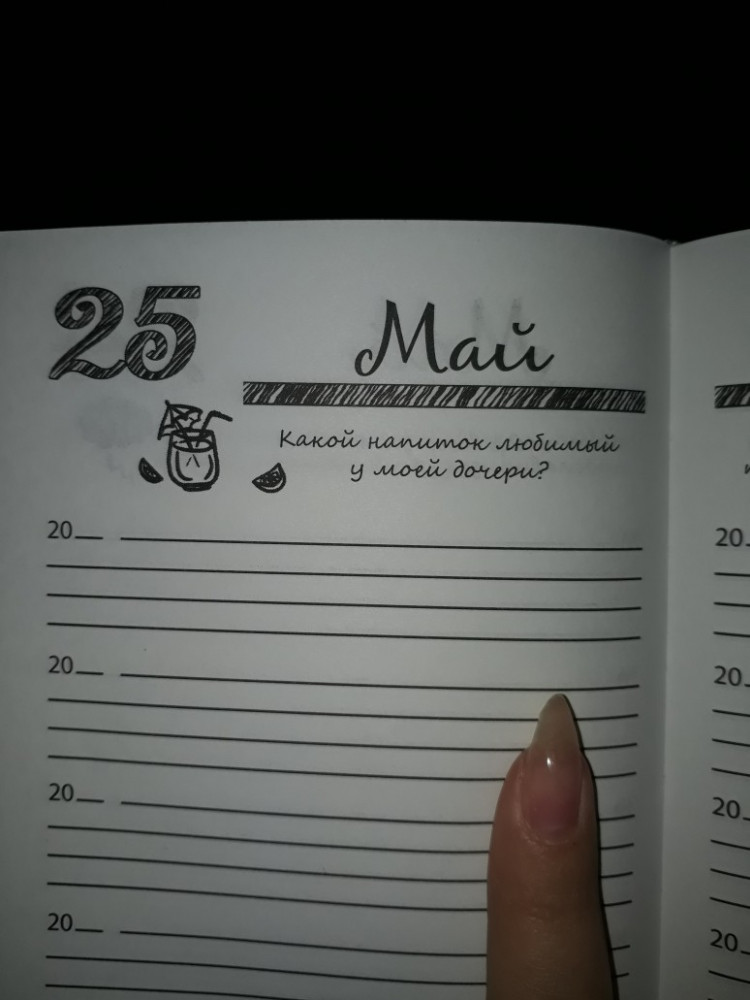 25
Май
Какой напиток любимый
у моей дочери?
20__
20__
20__
20__
20
20
20
20